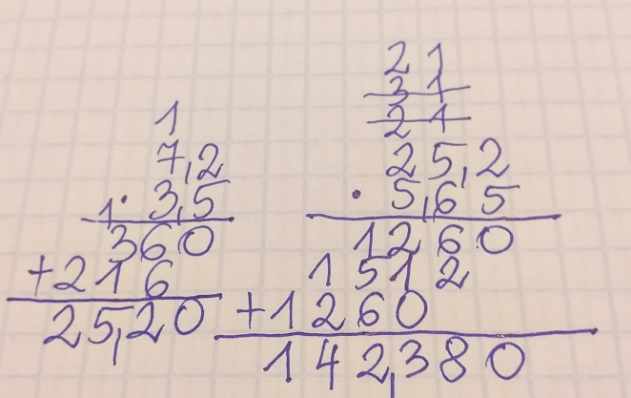 1
7,2
1 · 3,5
360
+216
25,20
21
31
21
25,2
· 5,65
1260
1512
+1260
142,380